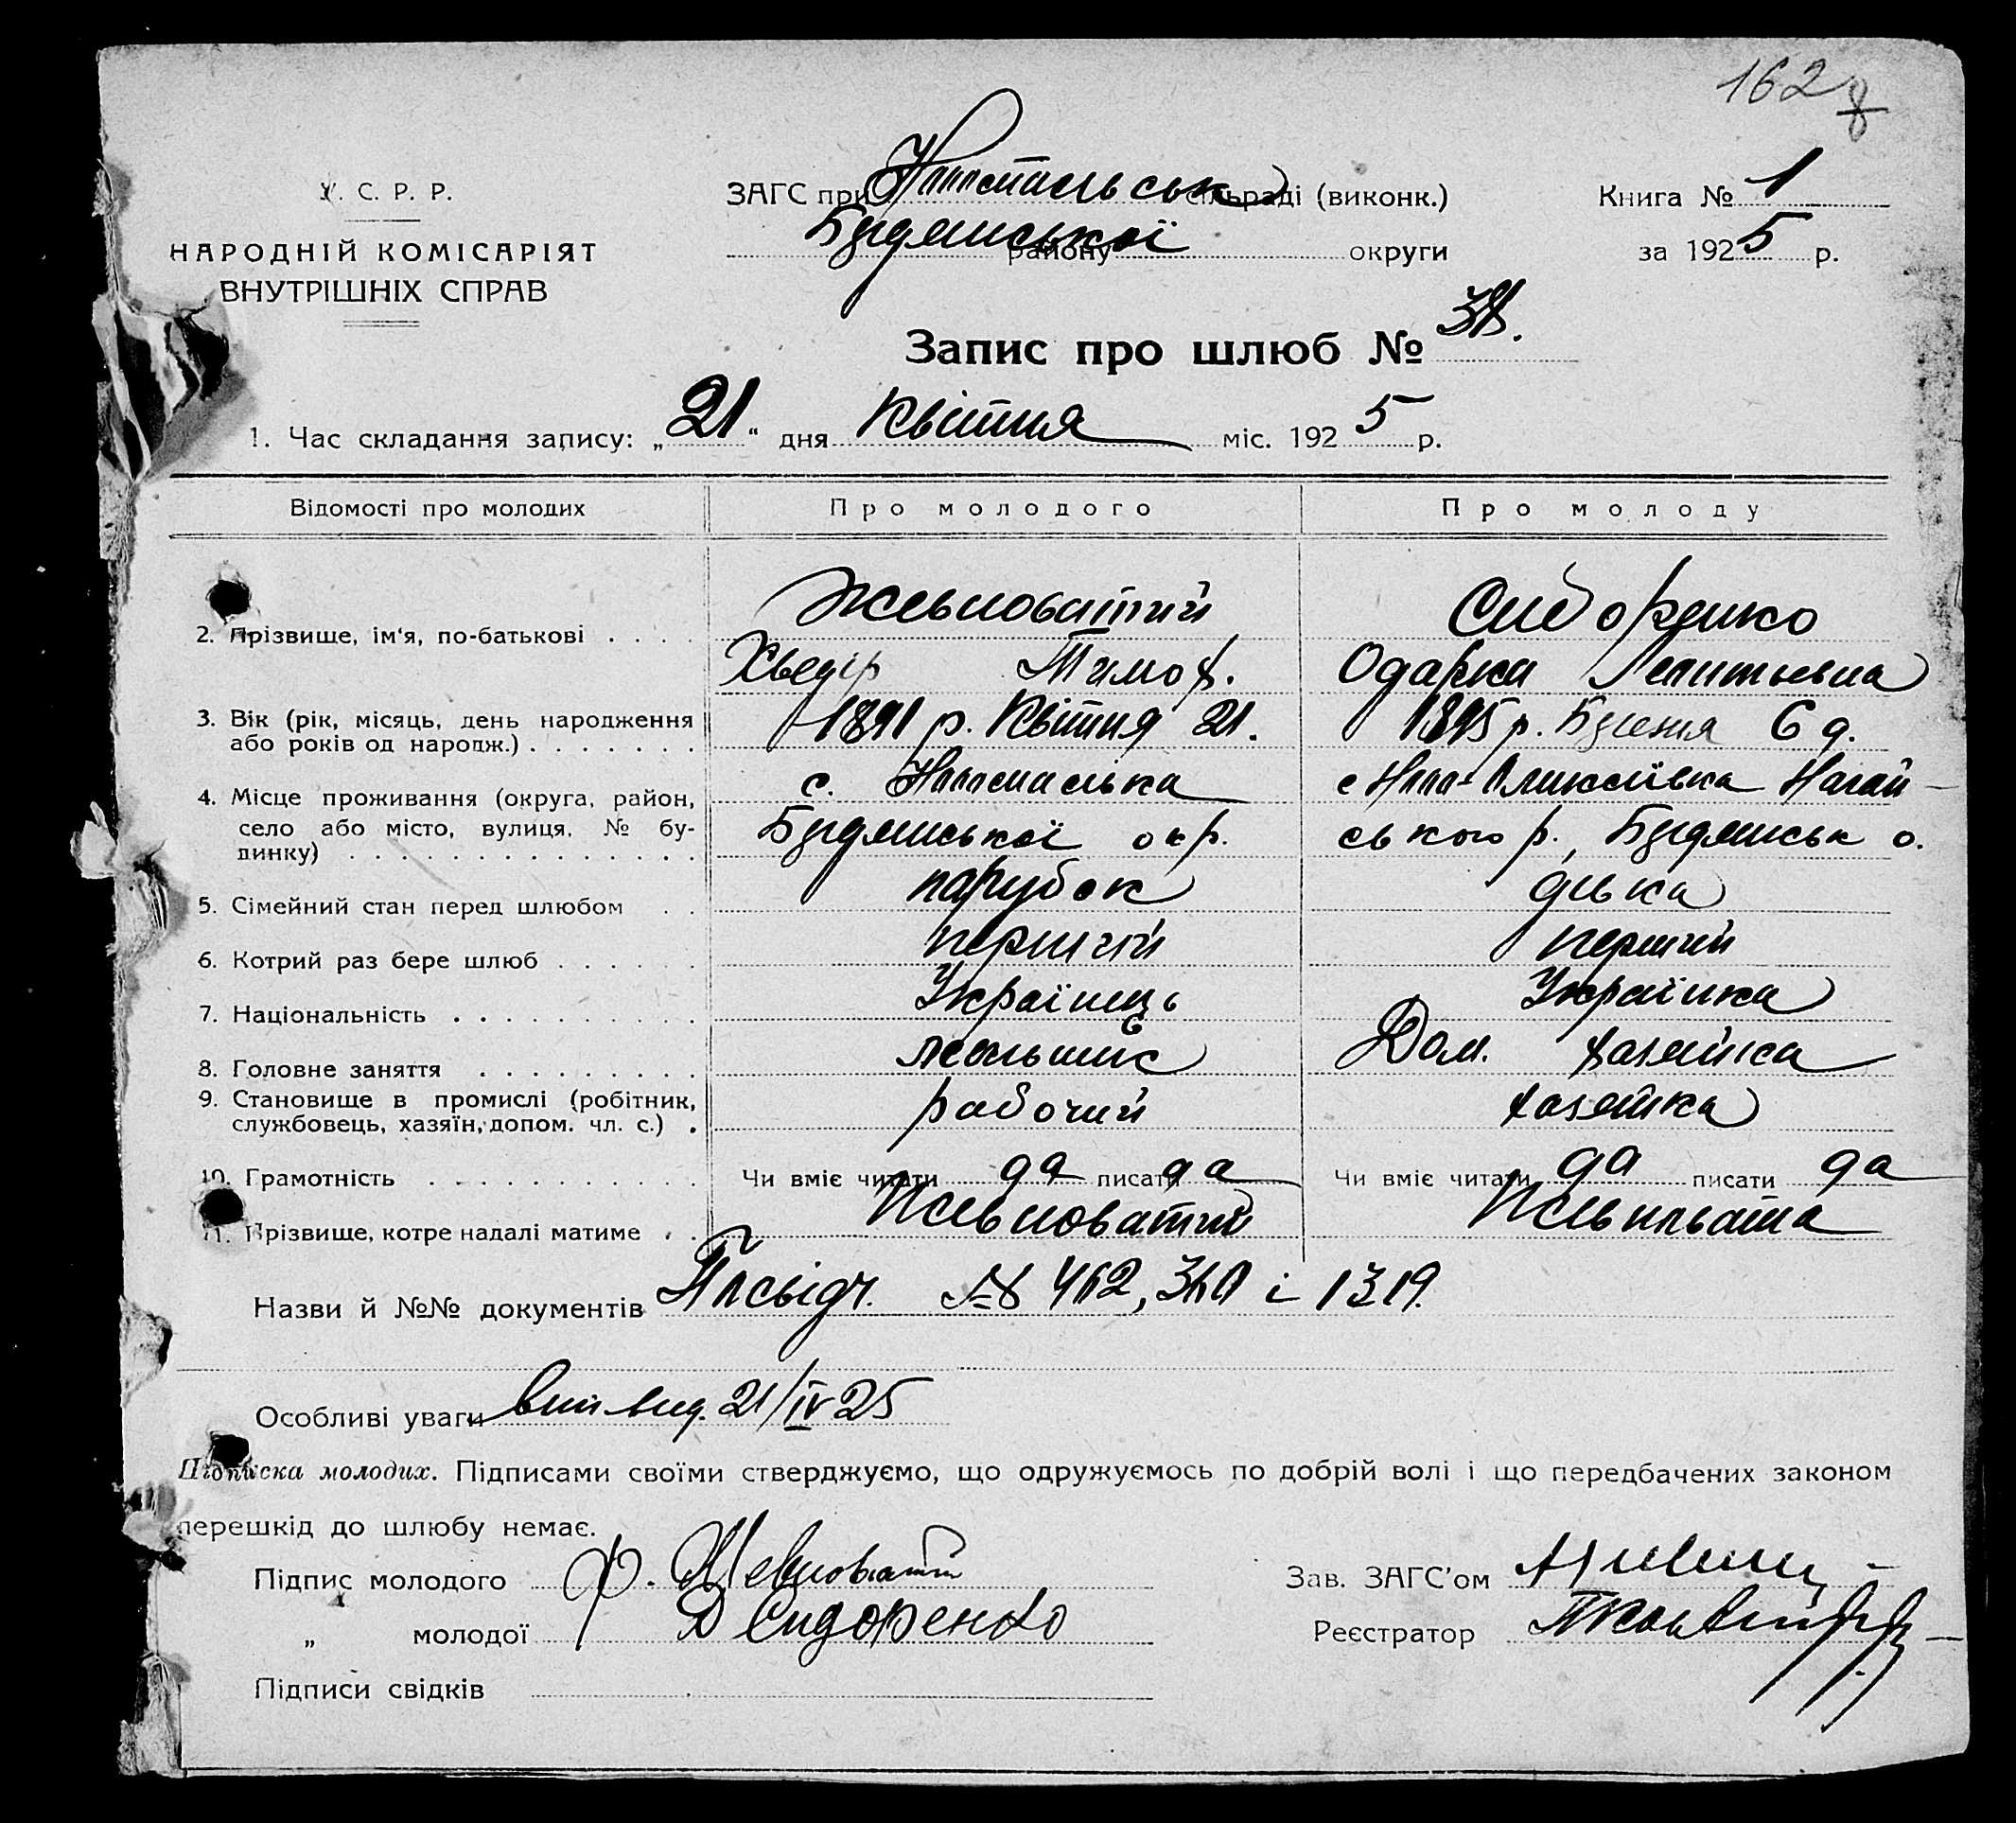 162
У. С. Р. Р.
НАРОДНІЙ КОМІСАРІЯТ
ВНУТРІШНІХ СПРАВ
ЗАГС при сільраді (виконк.)
району округи
Книга № 1
за 1925 р.
Запис про шлюб №
1. Час складання запису: „21“ дня Квітня міс. 1925 р.
Відомості про молодих Про молодого Про молоду
2. Прізвище, ім'я, по-батькові
Жевноватий Сидоренко
Хведір Тимоф. Одарка
3. Вік (рік, місяць, день народження
або років од народж.)
1891 р. Квітня 21. 1895 р. 6 д.
4. Місце проживання (округа, район,
село або місто, вулиця, № бу-
динку)
с. с
окр. ського р., о.
5. Сімейний стан перед шлюбом парубок дівка
6. Котрий раз бере шлюб перший перший
7. Національність Українець Українка
8. Головне заняття Дом. хазяйка
9. Становище в промислі (робітник,
службовець, хазяїн, допом. чл. с.)
рабочий хазяйка
10. Грамотність Чи вміє читати да писати да Чи вміє читати да писати да
11. Прізвище, котре надалі матиме Жевноватий Жевновата
Назви й №№ документів Посвідч. № і 1319.
Особливі уваги 21/IV 25
Підписка молодих. Підписами своїми стверджуємо, що одружуємось по добрій волі і що передбачених законом
перешкід до шлюбу немає.
Підпис молодого Ф. Жевноватий
„ молодої Сидоренко
Зав. ЗАГС'ом
Реєстратор
Підписи свідків